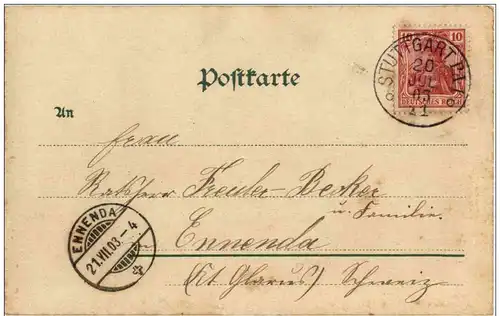 10
STUTTGART
20
JUL
03
DEUTSCHES REICH
Postkarte
An
Frau
Ratsherr Freuler-Becker
u. Familie.
ENNENDA
21.VII.03-4
Ennenda
(Kt Glarus) Schweiz